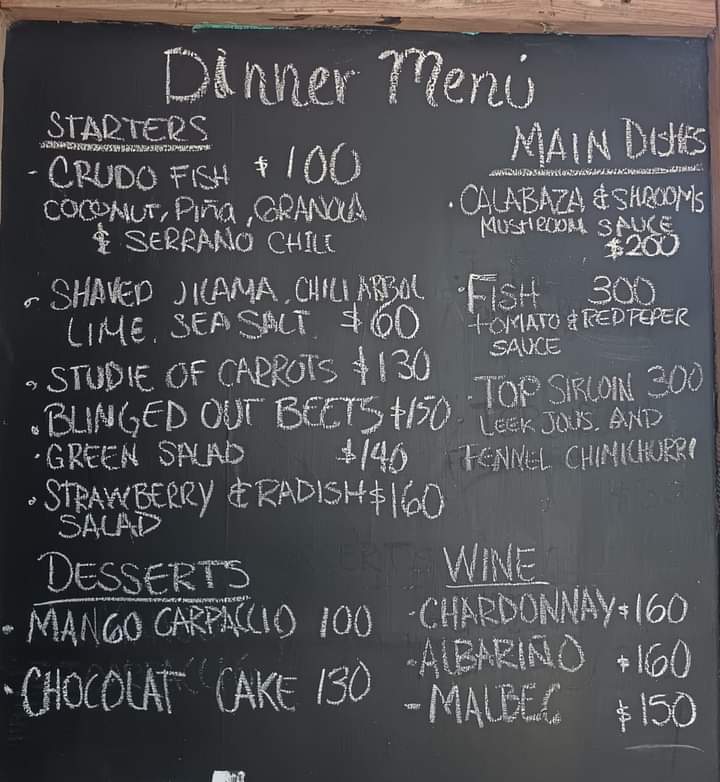 Dinner Menú
STARTERS
- CRUDO FISH $100
COCONUT, Piña, GRANOLA
& SERRANO CHILI
SHAVED JICAMA, CHILI ARBOL
LIME. SEA SALT. $60
STUDIE OF CARROTS $130
BLINGED OUT BEETS $150
GREEN SALAD $140
STRAWBERRY & RADISH $160
SALAD
MAIN DISHES
CALABAZA & SHROOMS
MUSHROOM SAUCE
$200
FISH 300
TOMATO & RED PEPER
SAUCE
TOP SIRLOIN 300
LEEK JOUS. AND
FENNEL CHIMICHURRI
DESSERTS
MANGO CARPACCIO 100
CHOCOLAT CAKE 130
WINE
CHARDONNAY $160
ALBARIÑO $160
- MALBEC $150